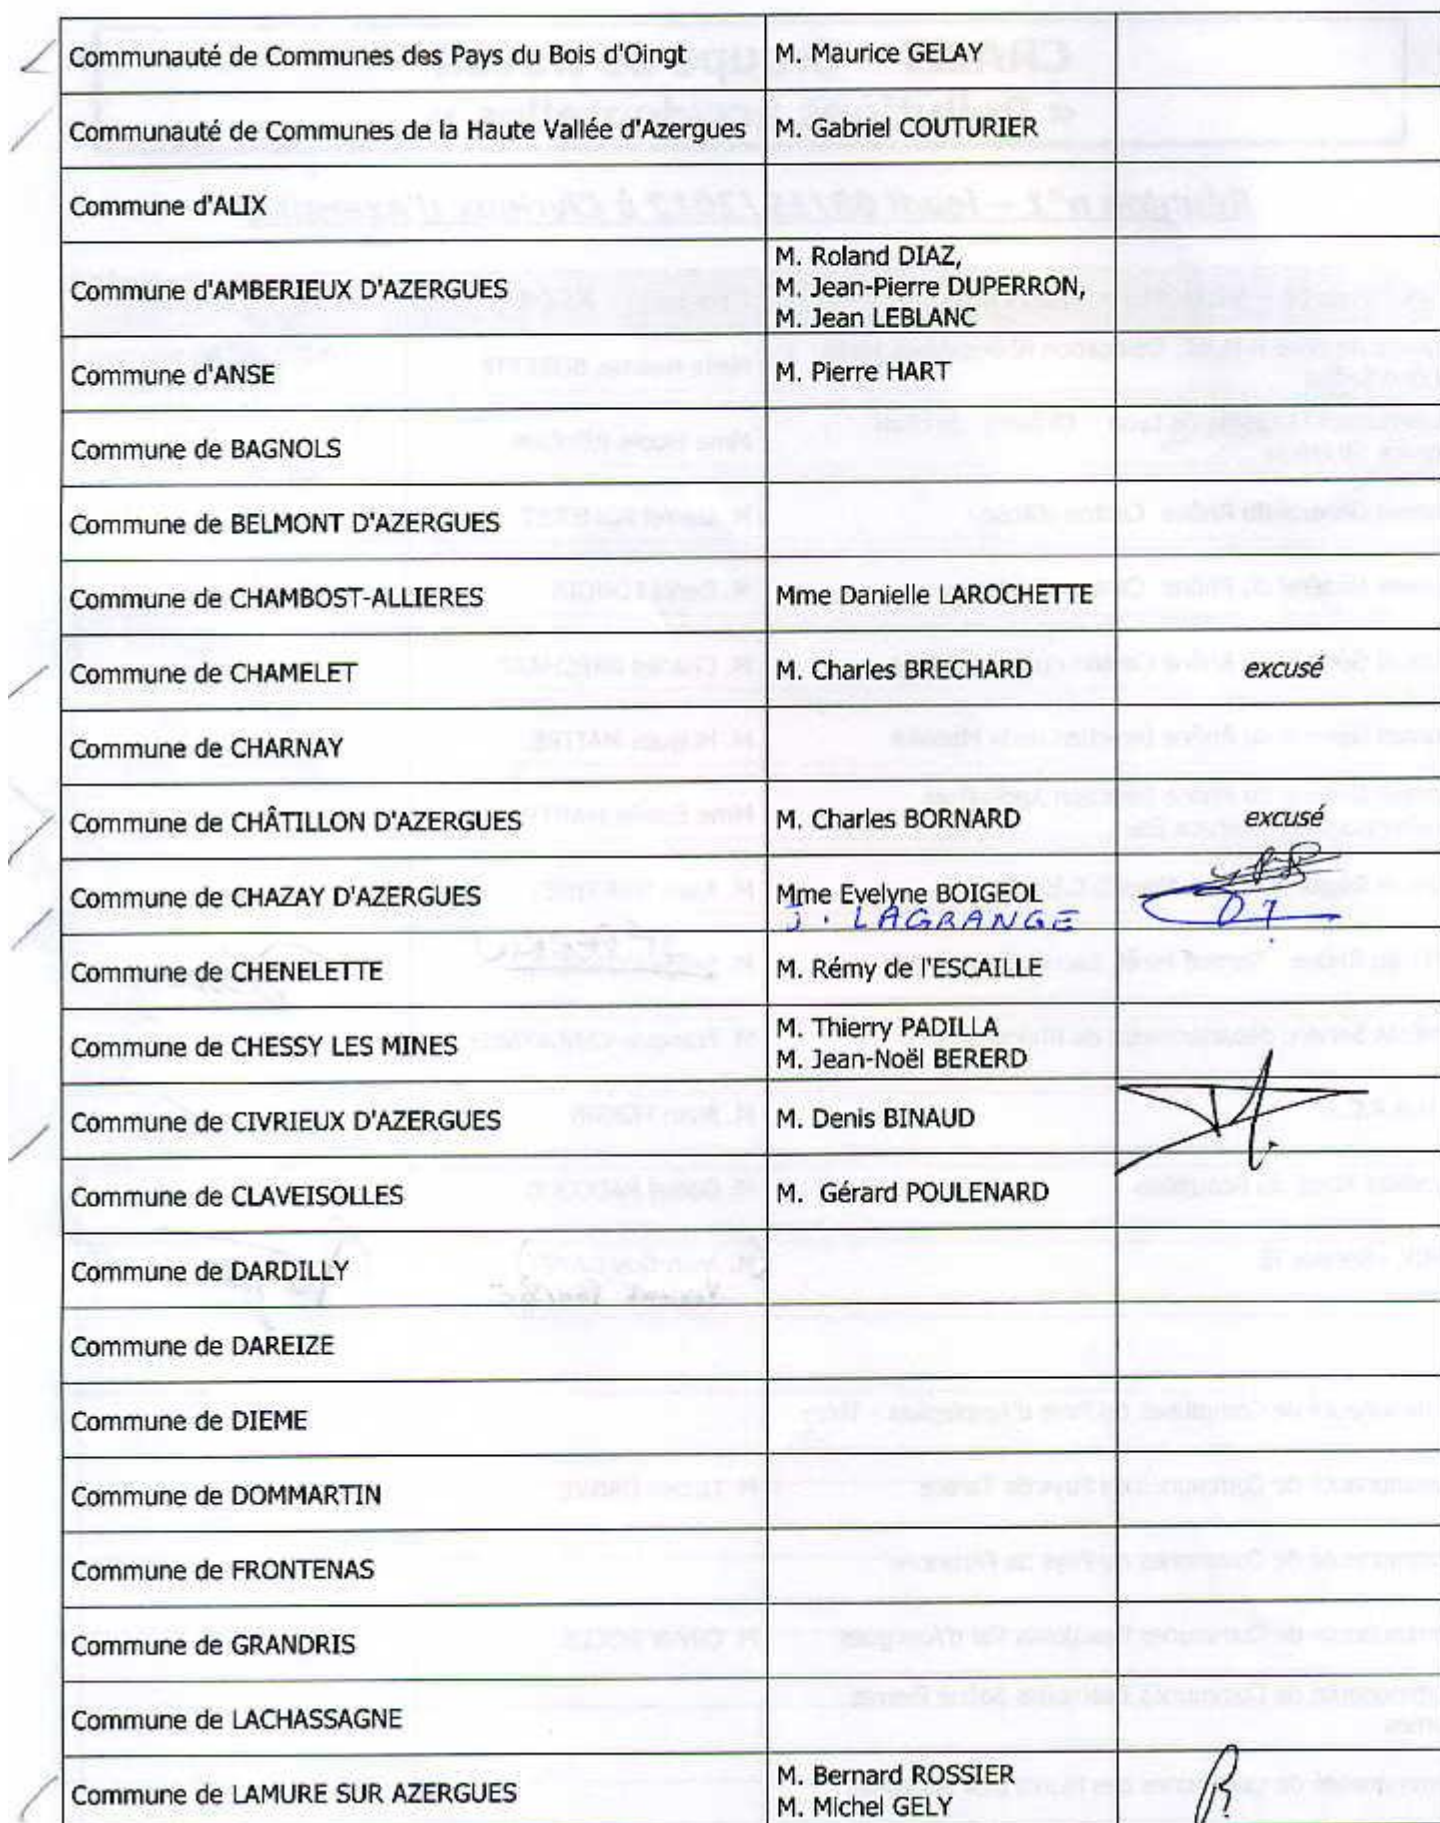 Communauté de Communes des Pays du Bois d'Oingt M. Maurice GELAY
Communauté de Communes de la Haute Vallée d'Azergues M. Gabriel COUTURIER
Commune d'ALIX
Commune d'AMBERIEUX D'AZERGUES M. Roland DIAZ,
M. Jean-Pierre DUPERRON,
M. Jean LEBLANC
Commune d'ANSE M. Pierre HART
Commune de BAGNOLS
Commune de BELMONT D'AZERGUES
Commune de CHAMBOST-ALLIERES Mme Danielle LAROCHETTE
Commune de CHAMELET M. Charles BRECHARD excusé
Commune de CHARNAY
Commune de CHÂTILLON D'AZERGUES M. Charles BORNARD excusé
Commune de CHAZAY D'AZERGUES Mme Evelyne BOIGEOL
J. LAGRANGE
Commune de CHENELETTE M. Rémy de l'ESCAILLE
Commune de CHESSY LES MINES M. Thierry PADILLA
M. Jean-Noël BERERD
Commune de CIVRIEUX D'AZERGUES M. Denis BINAUD
Commune de CLAVEISOLLES M. Gérard POULENARD
Commune de DARDILLY
Commune de DAREIZE
Commune de DIEME
Commune de DOMMARTIN
Commune de FRONTENAS
Commune de GRANDRIS
Commune de LACHASSAGNE
Commune de LAMURE SUR AZERGUES M. Bernard ROSSIER
M. Michel GELY